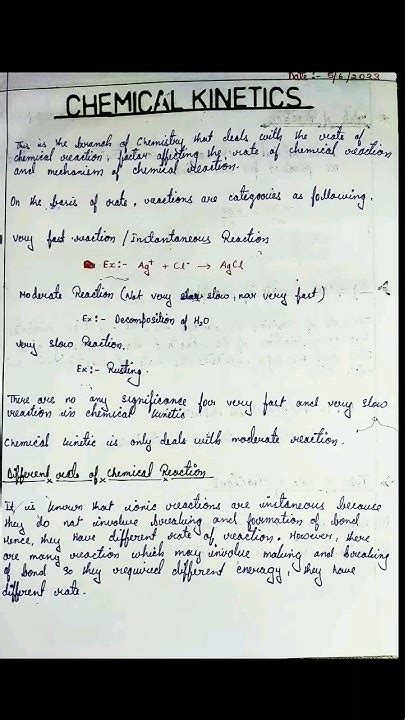 Date :- 5/6/2023
CHEMICAL KINETICS
This is the branch of Chemistry that deals with the rate of
chemical reaction, factor affecting the rate of chemical reaction
and mechanism of chemical reaction.
On the basis of rate, reactions are categories as following.
very fast reaction / Instantaneous Reaction
Ex:- Ag+ + Cl- → AgCl
Moderate Reaction (Not very slow, nor very fast)
Ex:- Decomposition of H2O
very slow Reaction.
Ex:- Rusting.
There are no any significance for very fast and very slow
reaction in chemical kinetic
Chemical kinetic is only deals with moderate reaction.
Different rate of Chemical Reaction
It is known that ionic reactions are instaneous because
they do not involve breaking and formation of bond
Hence, they have different rate of reaction. However, there
are many reaction which may involve making and breaking
of bond so they required different energy, they have
different rate.